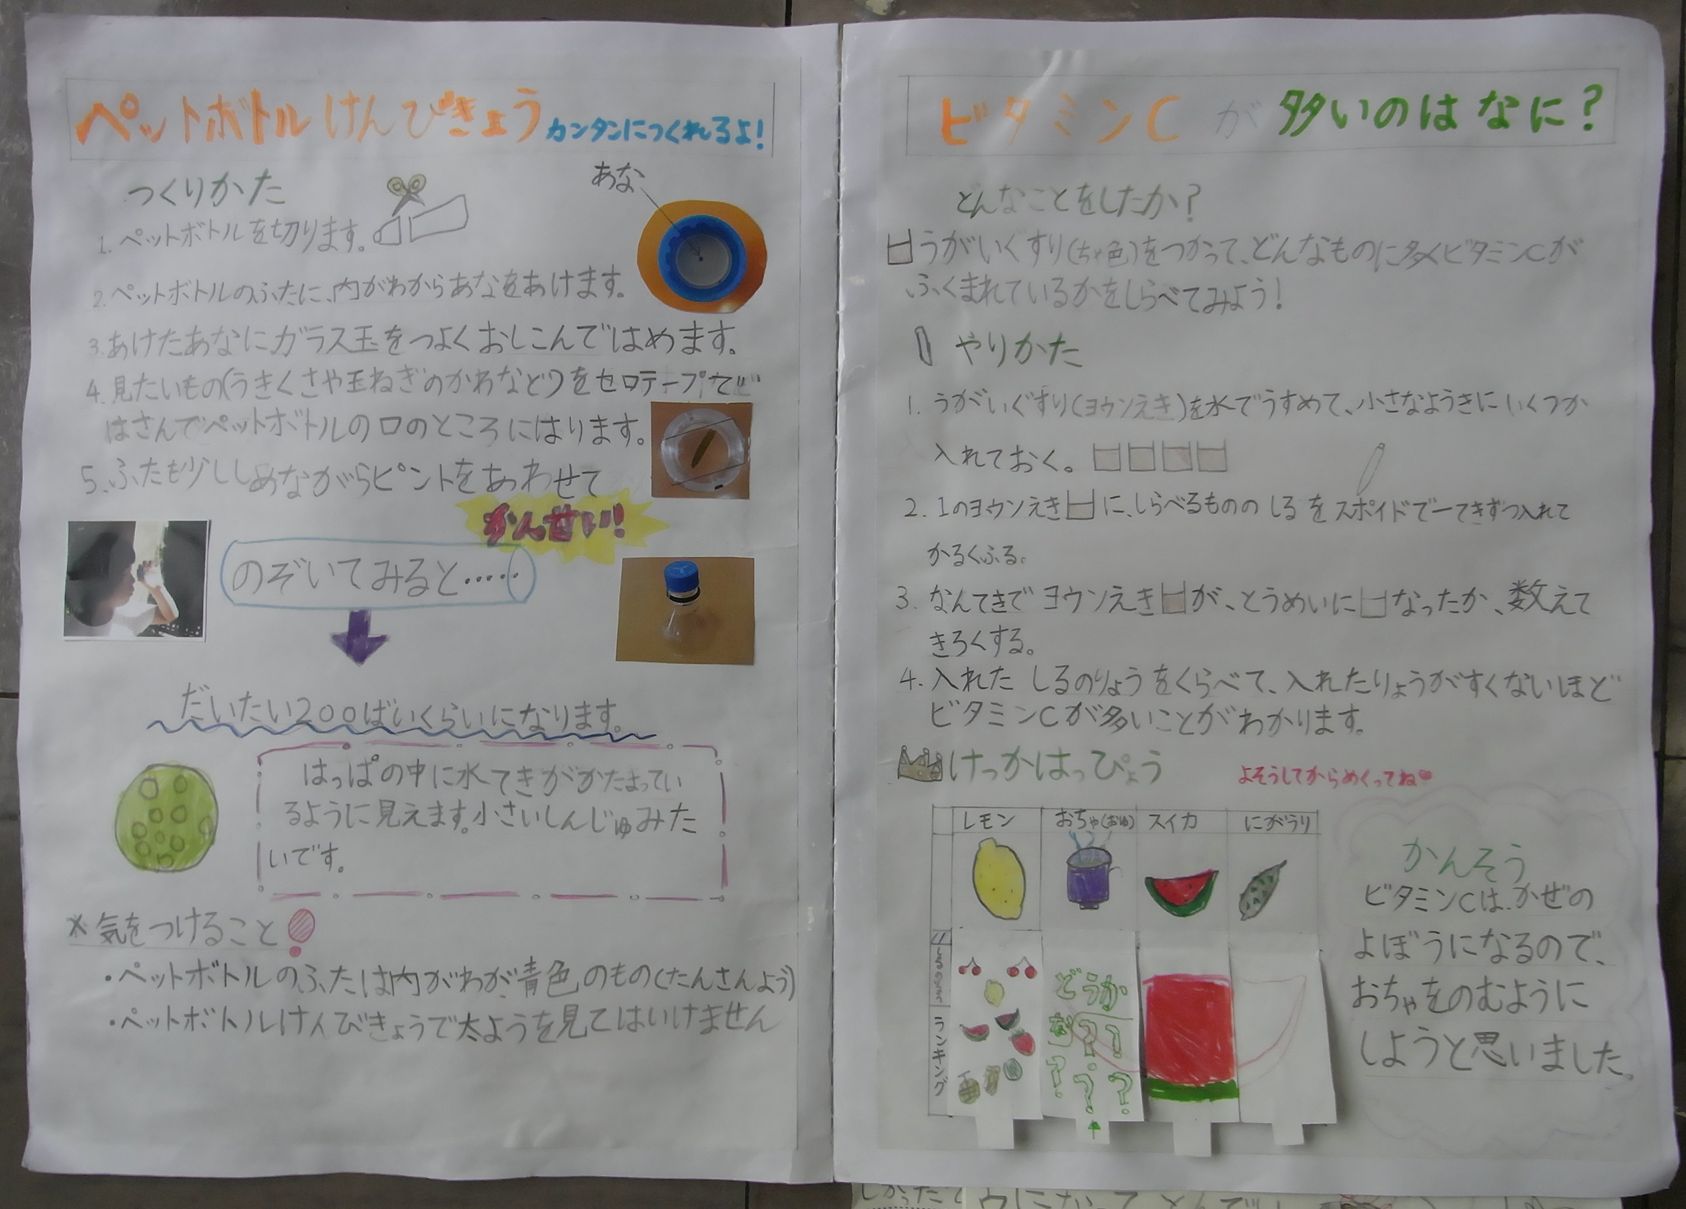 ペットボトルけんびきょう カンタンにつくれるよ!
つくりかた
あな
1. ペットボトルを切ります。
2. ペットボトルのふたに、内がわからあなをあけます。
3. あけたあなにガラス玉をつよくおしこんではめます。
4. 見たいもの(うきくさや玉ねぎのかわなど)をセロテープで
はさんでペットボトルの口のところにはります。
5. ふたを少ししめながらピントをあわせて
かんせい!
のぞいてみると……
だいたい200ばいくらいになります。
はっぱの中に水てきがかたまってい
るように見えます。小さいしんじゅみた
いです。
※気をつけること!
・ペットボトルのふたは内がわが、青色のもの(たんさんよう)
・ペットボトルけんびきょうで太ようを見てはいけません
ビタミンCが多いのはなに?
どんなことをしたか?
うがいぐすり(ちゃ色)をつかって、どんなものに多くビタミンCが
ふくまれているかをしらべてみよう!
やりかた
1. うがいぐすり(ヨウソえき)を水でうすめて、小さなようきにいくつか
入れておく。
2. 1のヨウソえきに、しらべるもののしるをスポイドで一てきずつ入れて
かるくふる。
3. なんてきでヨウソえきが、とうめいになったか、数えて
きろくする。
4. 入れたしるのりょうをくらべて、入れたりょうがすくないほど
ビタミンCが多いことがわかります。
けっかはっぴょう
よそうしてからめくってね
レモン おちゃ(おゆ) スイカ にがうり
ランキング
どうか
な
かんそう
ビタミンCは、かぜの
よぼうになるので、
おちゃをのむように
しようと思いました。